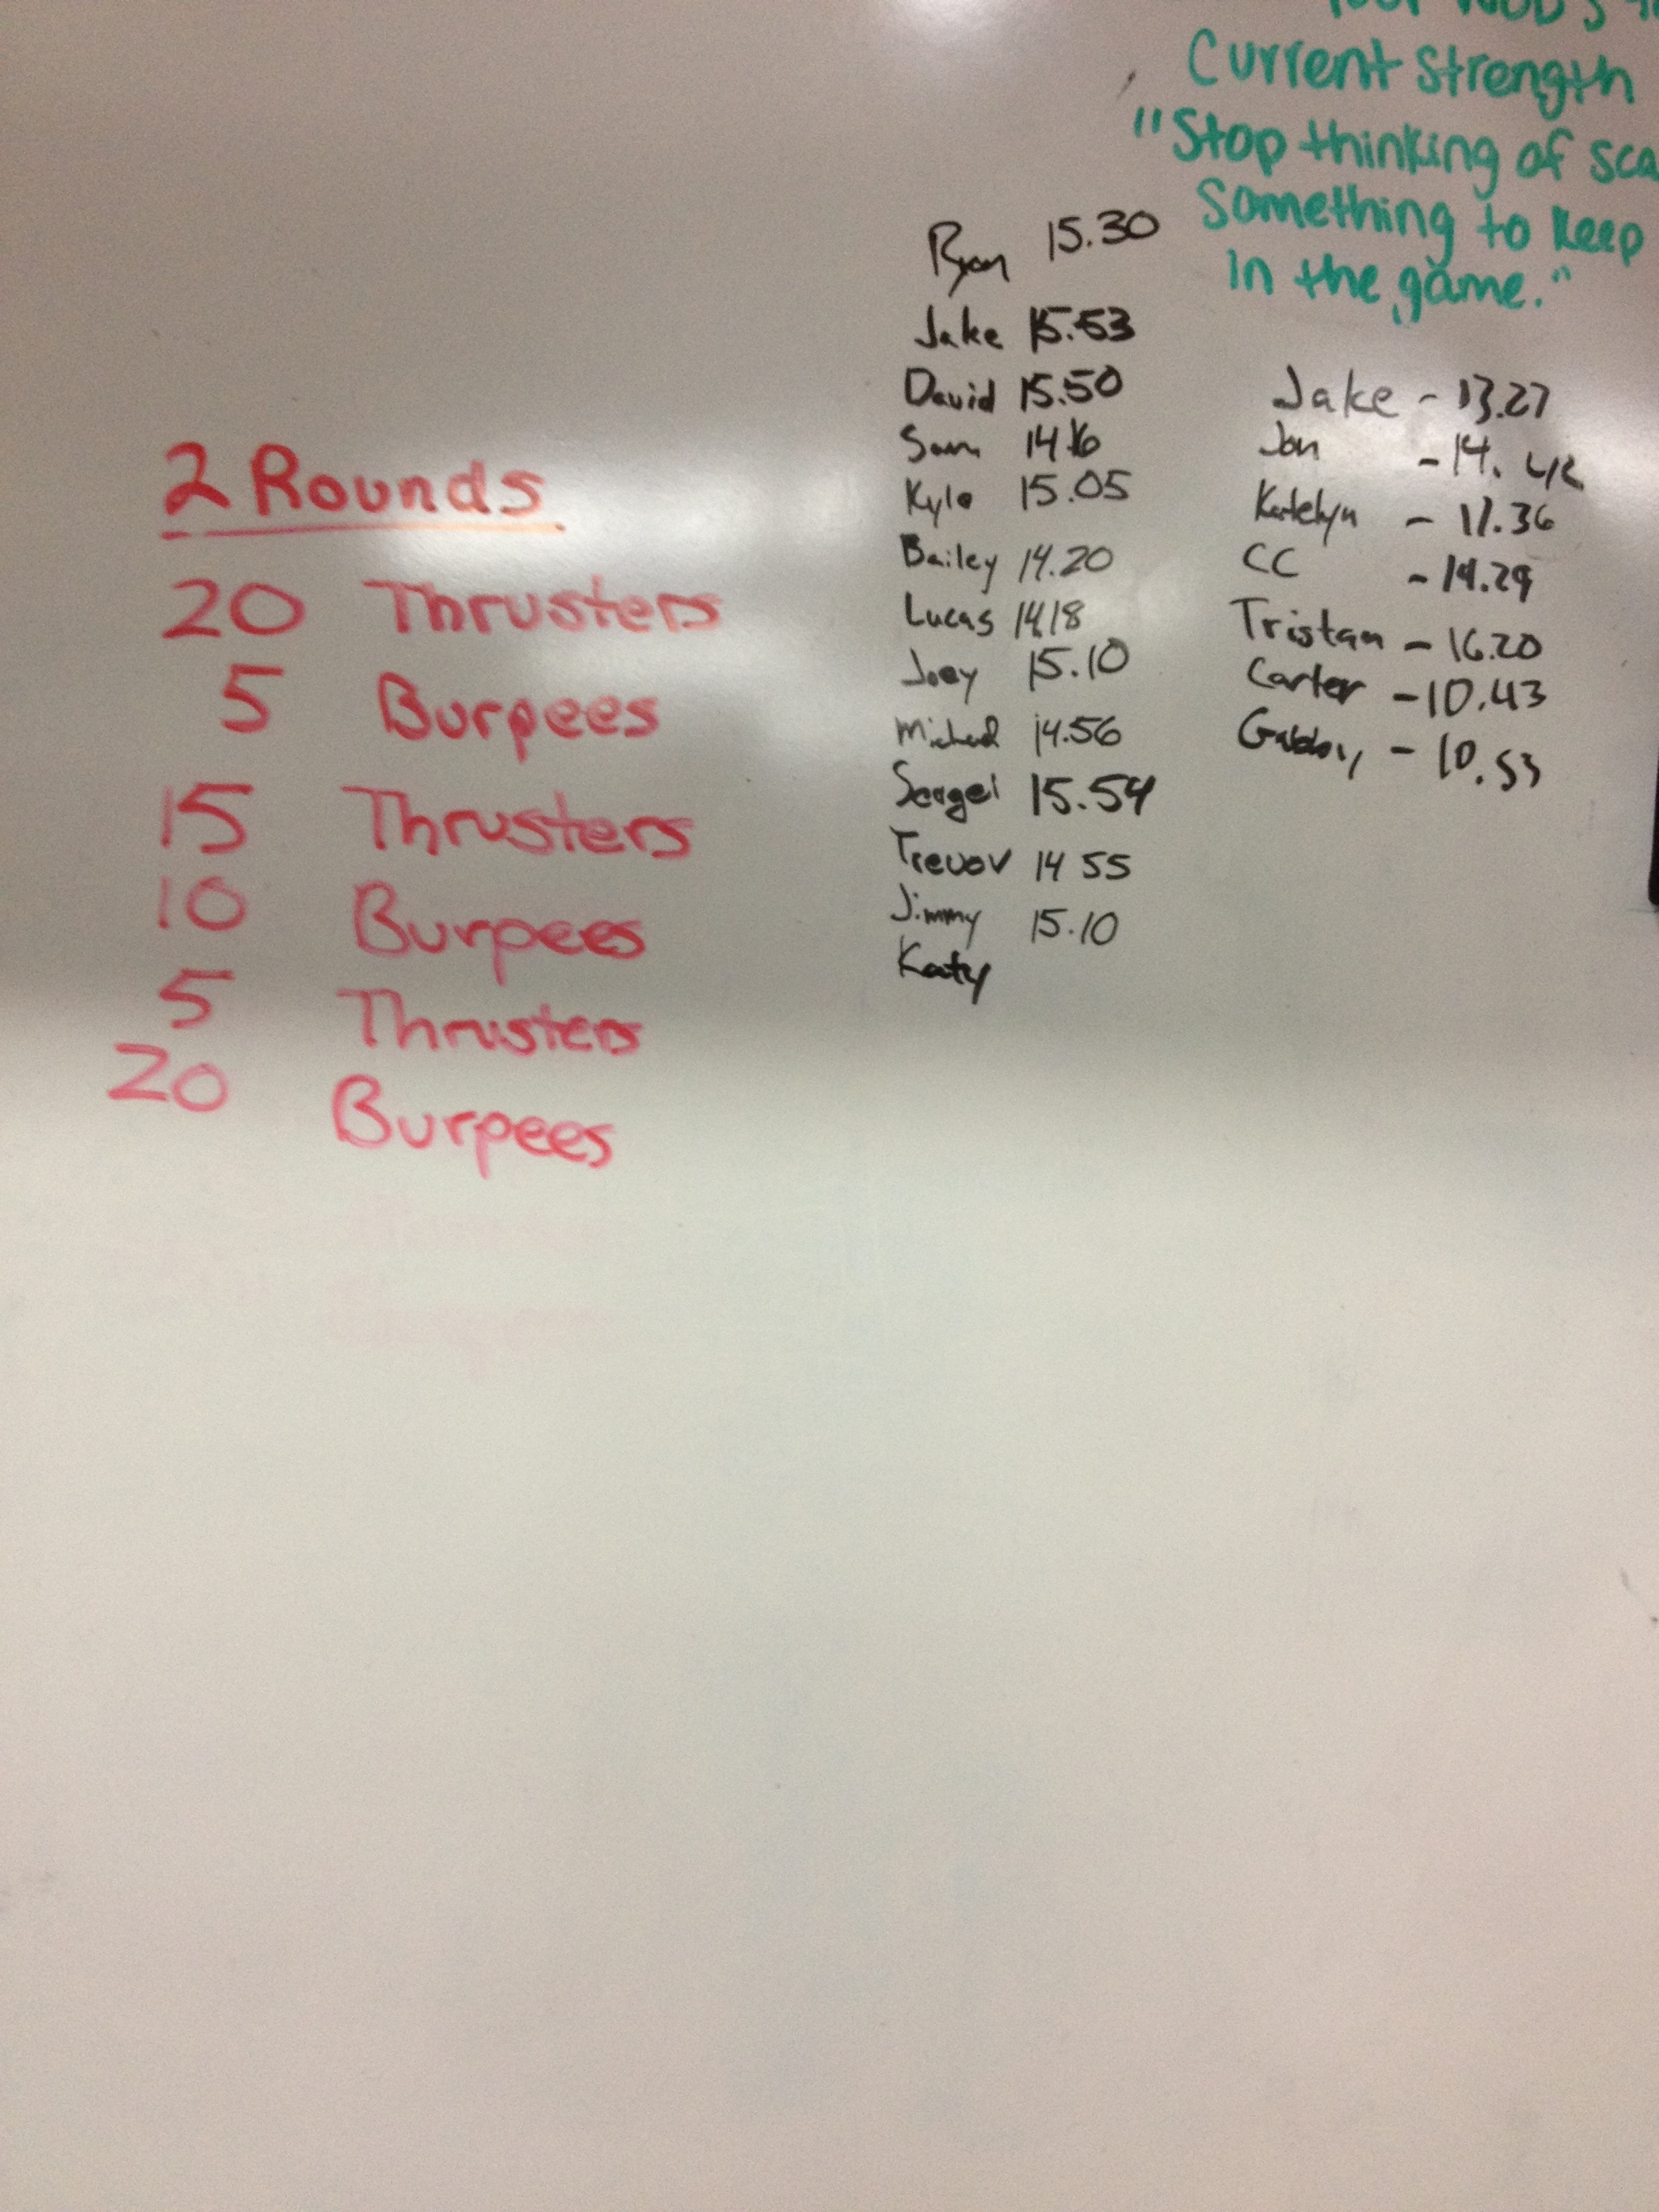 Current Strength
"Stop thinking of
Something to keep
in the game."
2 Rounds
20 Thrusters
5 Burpees
15 Thrusters
10 Burpees
5 Thrusters
20 Burpees
Ryan 15.30
Jake 15.53
David 15.50
Sam 14.16
Kyle 15.05
Bailey 14.20
Lucas 14.18
Joey 15.10
Michael 14.56
Sergei 15.54
Trevor 14 55
Jimmy 15.10
Katy
Jake - 13.27
Jon - 14.
Katelyn - 11.36
CC - 14.29
Tristan - 16.20
Carter - 10.43
Gabby - 10.53